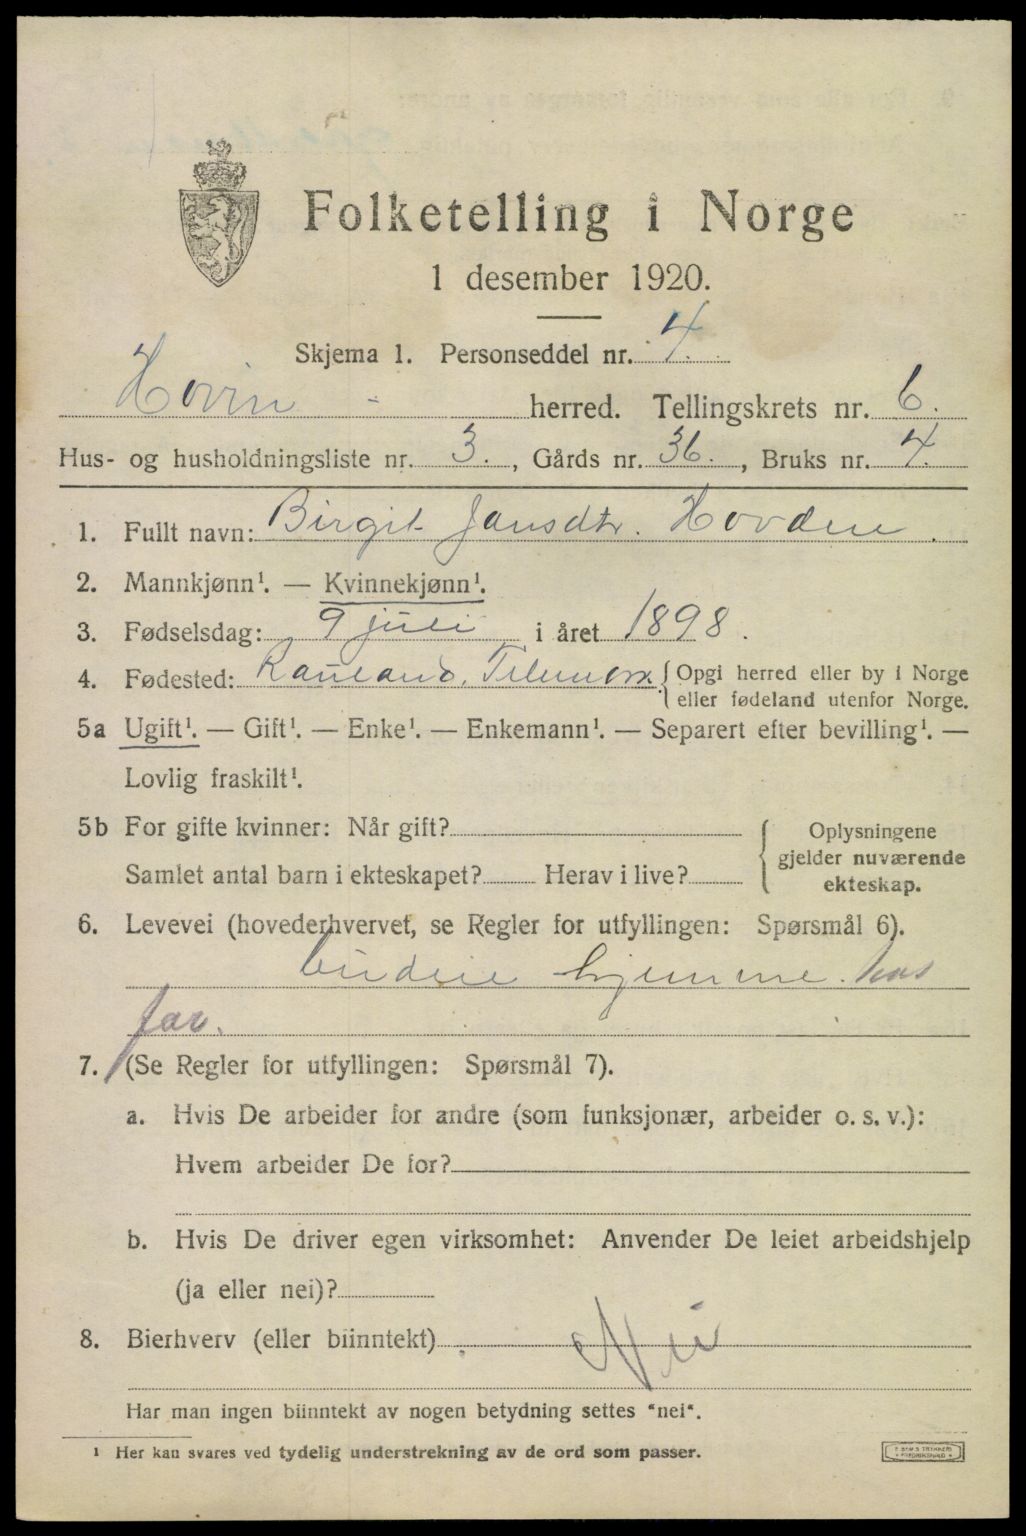 Folketelling i Norge
1 desember 1920.
Skjema 1. Personseddel nr. 4.
Hovin herred. Tellingskrets nr. 6.
Hus- og husholdningsliste nr. 3., Gårds nr. 36., Bruks nr. 4.
1. Fullt navn: Birgit Jansdtr. Hovden.
2. Mannkjønn¹. — Kvinnekjønn¹.
3. Fødselsdag: 9 juli i året 1898.
4. Fødested: Rauland, Telemark. { Opgi herred eller by i Norge
eller fødeland utenfor Norge.
5a Ugift¹. — Gift¹. — Enke¹. — Enkemann¹. — Separert efter bevilling¹. —
Lovlig fraskilt¹.
5b For gifte kvinner: Når gift?
Samlet antal barn i ekteskapet? Herav i live?
{ Oplysningene
gjelder nuværende
ekteskap.
6. Levevei (hovederhvervet, se Regler for utfyllingen: Spørsmål 6).
budeie hjemme hos
far.
7. (Se Regler for utfyllingen: Spørsmål 7).
a. Hvis De arbeider for andre (som funksjonær, arbeider o. s. v.):
Hvem arbeider De for?
b. Hvis De driver egen virksomhet: Anvender De leiet arbeidshjelp
(ja eller nei)?
8. Bierhverv (eller biinntekt) Nei
Har man ingen biinntekt av nogen betydning settes "nei".
¹ Her kan svares ved tydelig understrekning av de ord som passer.